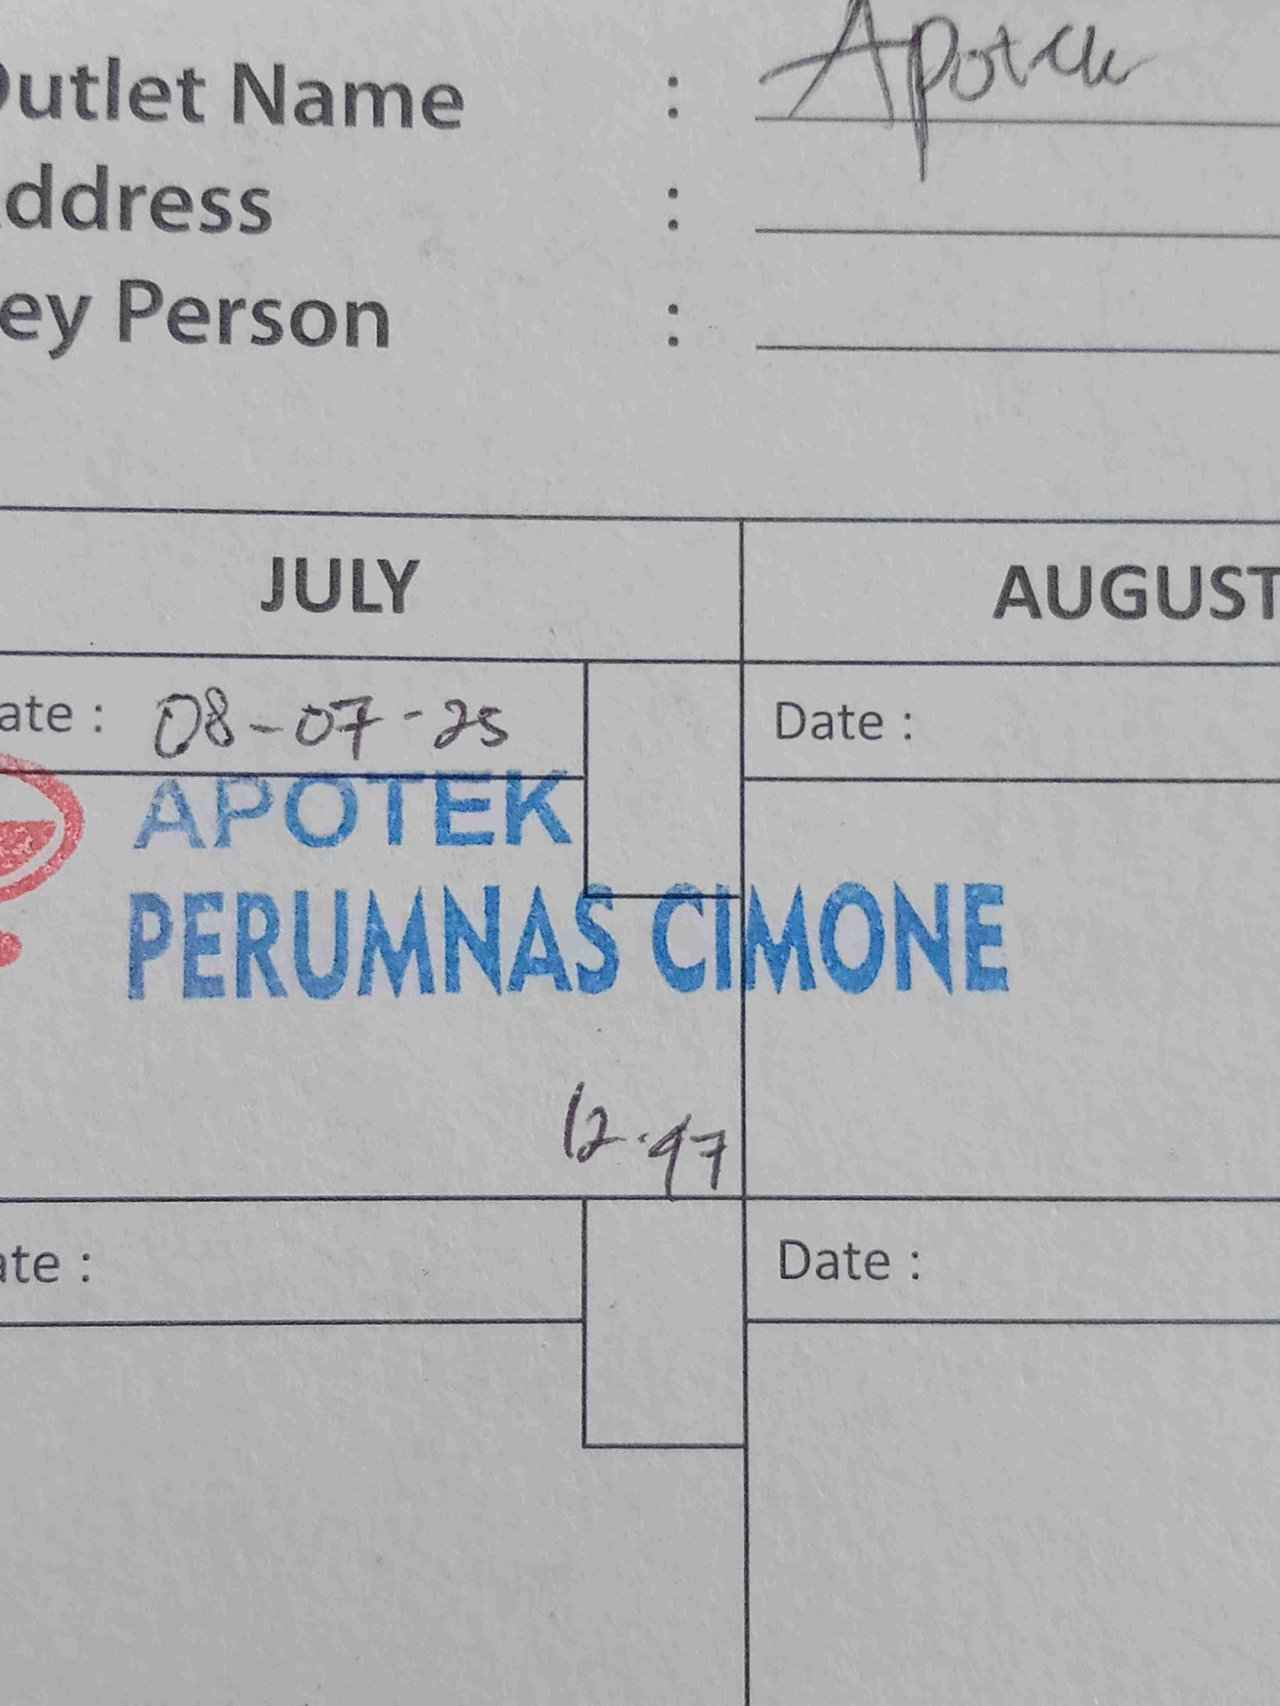 Outlet Name : Apotek
Address :
Key Person :
JULY AUGUST
Date : 08-07-25 Date :
APOTEK
PERUMNAS CIMONE
12.47
Date : Date :